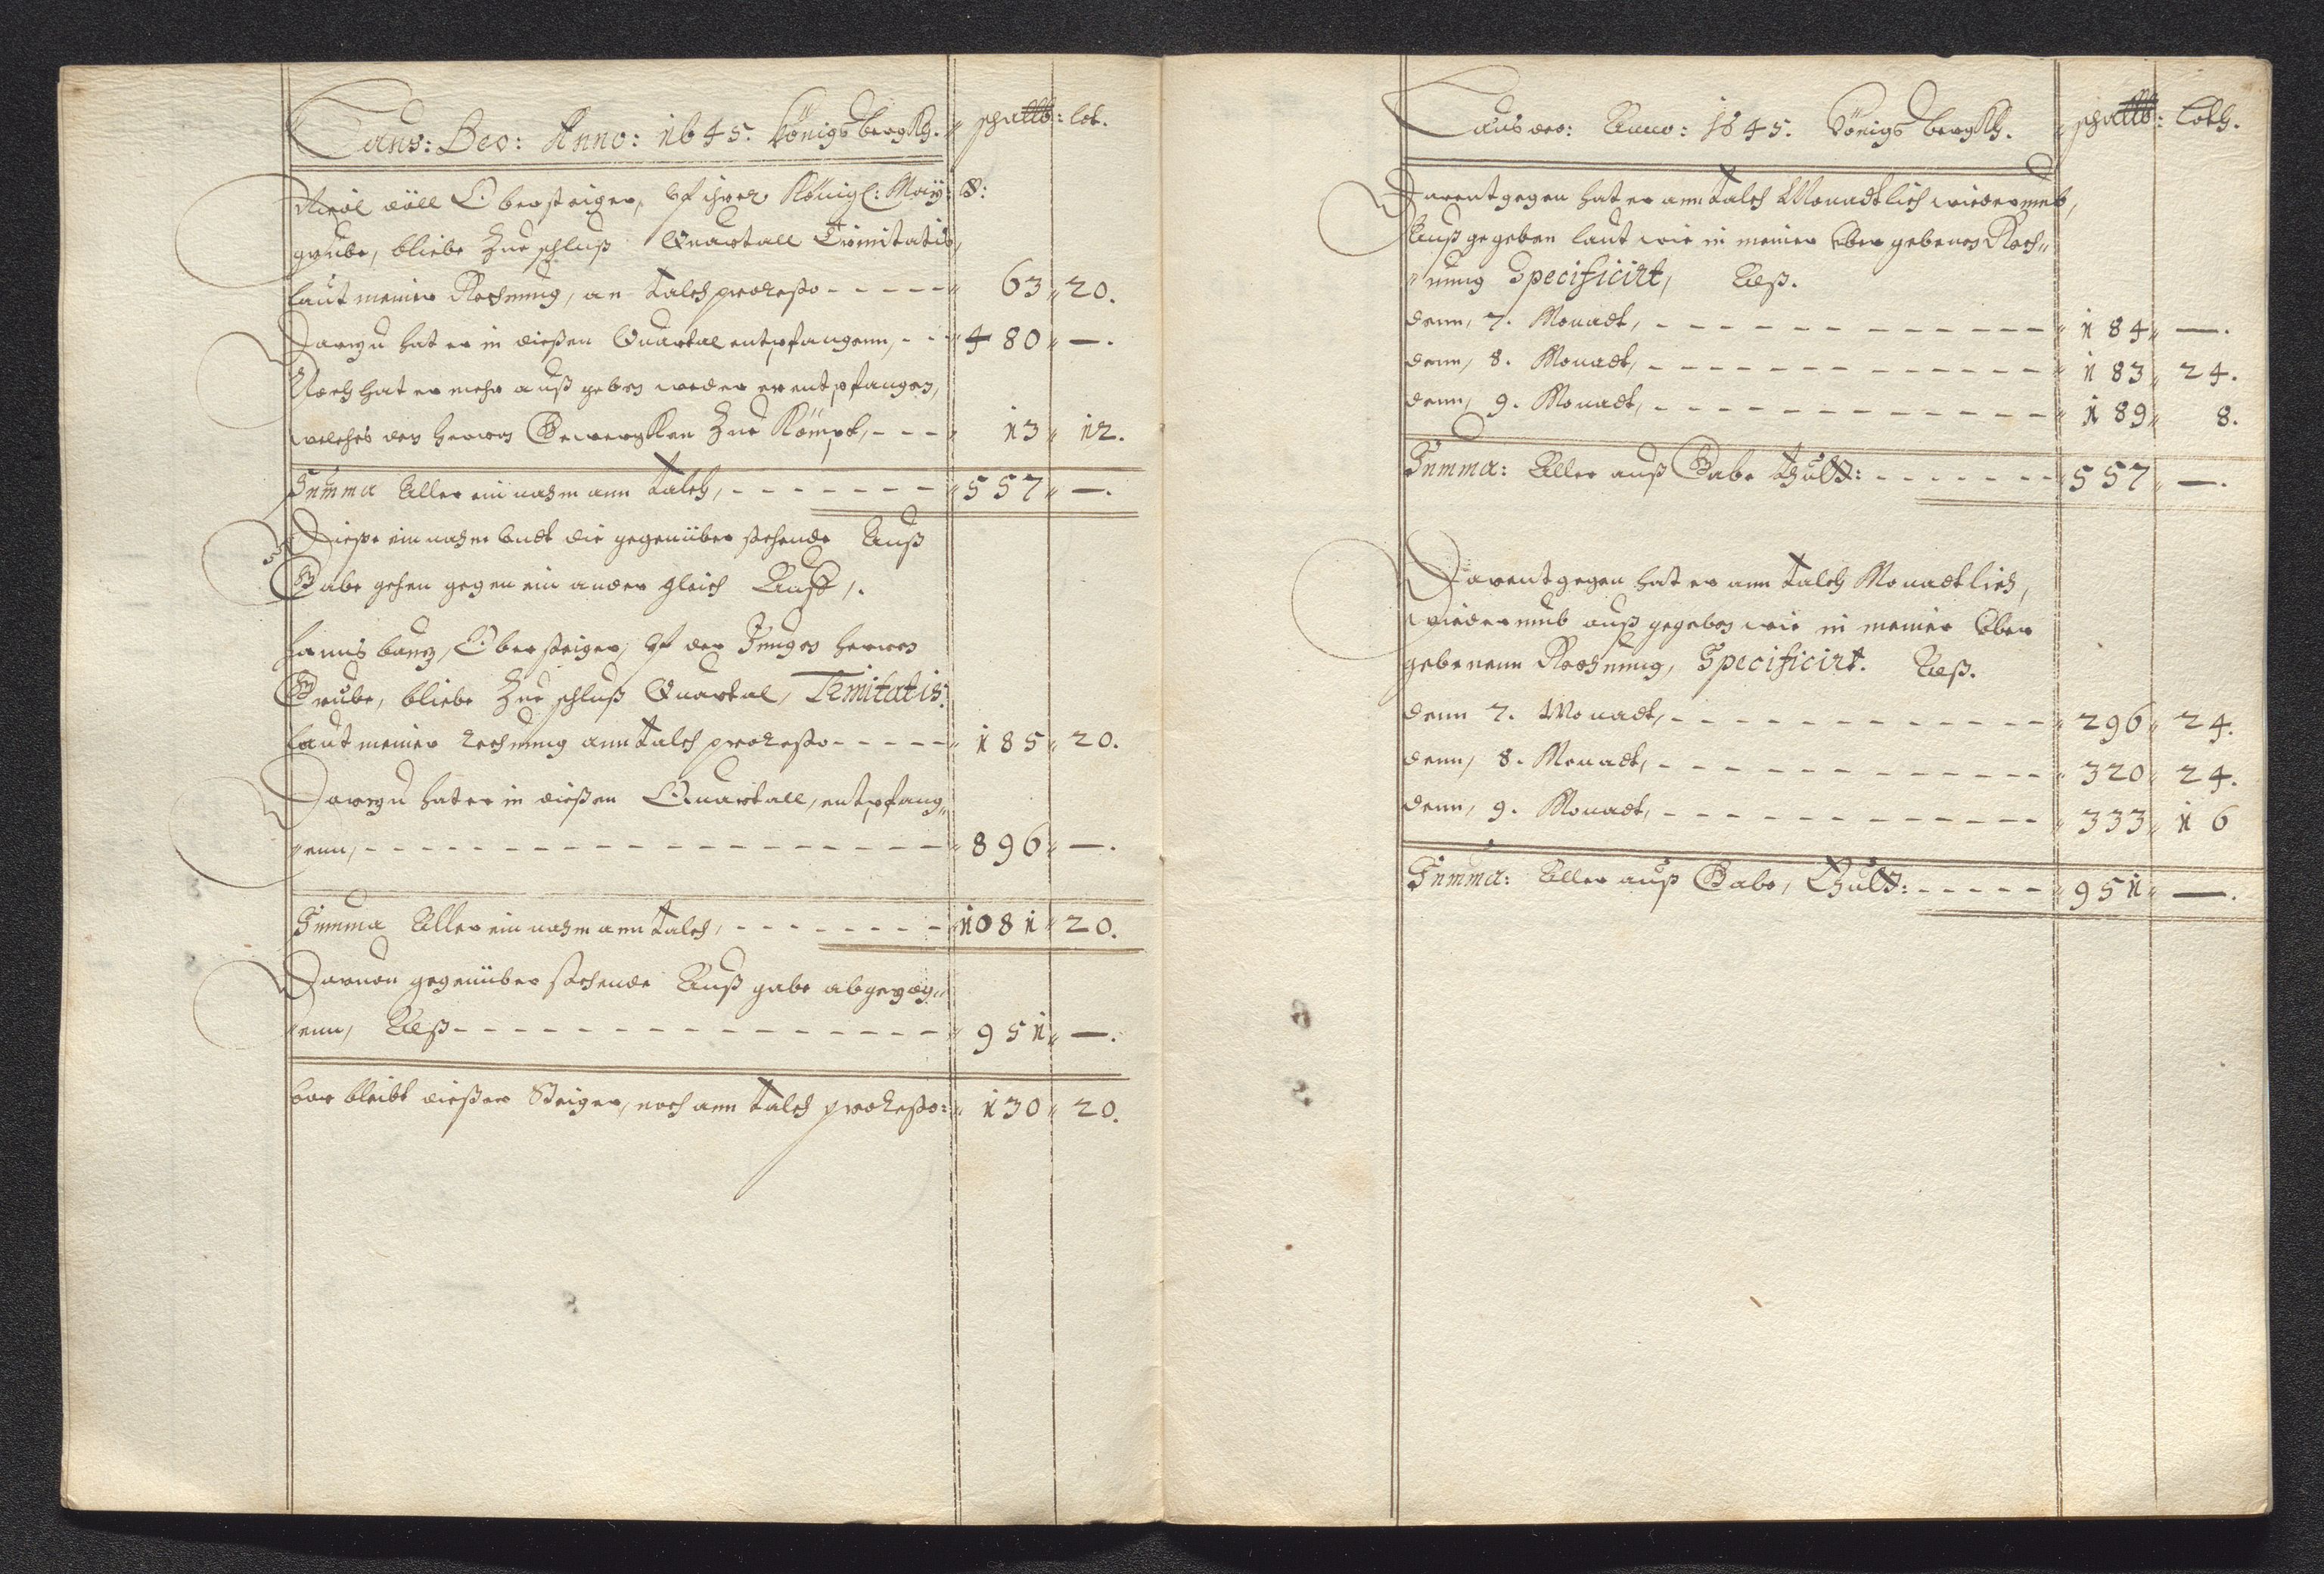 Laus: Deo: Anno: 1645. Königsbergkh. schallb: lot.
Niröl Obersteiger, vf ihrer Königl: May: S:
grube, bliebe Zue schluß Quartall Trinitatis,
laut meiner Rechnung, an talch pro resto - - - - - 63 " 20.
Darzu hat er in dießen Quartal entpfangenn, - - " 480 " —.
Noch hat er mehr auß geben weder er entpfangen,
welches den herren Gewergken Zue Kömpt, - - - " 13 " 12.
Summa Aller ein nahm ann talch, - - - - - - - " 557 " —.
Dieße ein nahm vndt die gegenüber stehende Auß
Gabe gehen gegen ein ander gleich Auff.
Hannß Obersteiger, vf der Jungen herren
Grube, bliebe Zue schluß Quartal, Trnitatis:
laut meiner rechnung ann talch pro resto - - - - - " 185 " 20.
Darzu hat er in dießen Quartall, entpfang"
"enn, - - - - - - - - - - - - - - - - - - " 896 " —.
Summa Aller ein nahm ann talch, - - - - - - - - " 1081 " 20.
Daruon gegenüber stehende Auß gabe abgezog"
"enn, Alß - - - - - - - - - - - - - - - - " 951 " —.
vor bleibt dießer Steiger, noch ann talch pro resto: " 130 " 20.
Laus deo: Anno: 1645. Königsbergkh. schallb: loth.
Darentgegen hat er ann talch Monadtlich wiederumb,
Auß gegeben laut wie in meiner vbergebenen Rech"
"nung Specificirt, Alß.
denn, 7. Monadt, - - - - - - - - - - - - - " 184 " —.
denn, 8. Monadt, - - - - - - - - - - - - - " 183 " 24.
denn, 9. Monadt, - - - - - - - - - - - - - " 189 " 8.
Summa: Aller auß Gabe thutt: - - - - - - - " 557 " —.
Darentgegen hat er ann talch Monadtlich,
wiederumb auß gegeben wie in meiner vber
gebenenn Rechnung, Specificirt. Alß.
denn 7. Monadt, - - - - - - - - - - - - - " 296 " 24.
denn, 8. Monadt, - - - - - - - - - - - - - " 320 " 24.
denn, 9. Monadt, - - - - - - - - - - - - - " 333 " 16
Summa: Aller auß Gabe, Thutt: - - - - - " 951 " —.